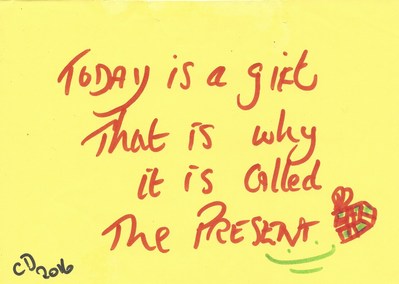 TODAY is a gift
That is why
it is called
The PRESENT.
CD 2016